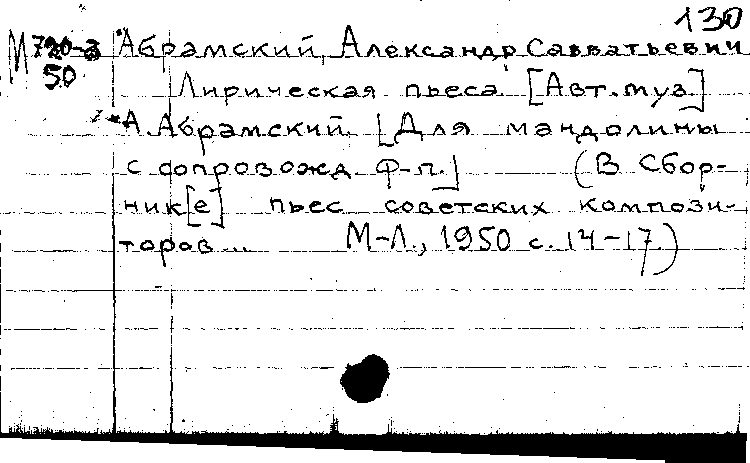 130
М 720-3 Абрамский, Александр Савватьевич
50 Лирическая пьеса. [Авт. муз.]
А. Абрамский. [Для мандолины
с сопровожд ф-п.] (В Сбор-
ник[е] пьес советских компози-
торов... М-Л., 1950 с. 14-17.)